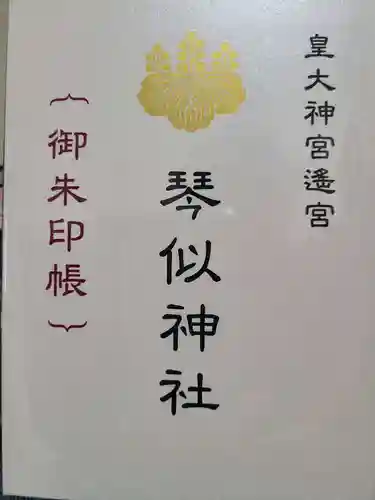 皇大神宮遙宮
琴似神社
{御朱印帳}